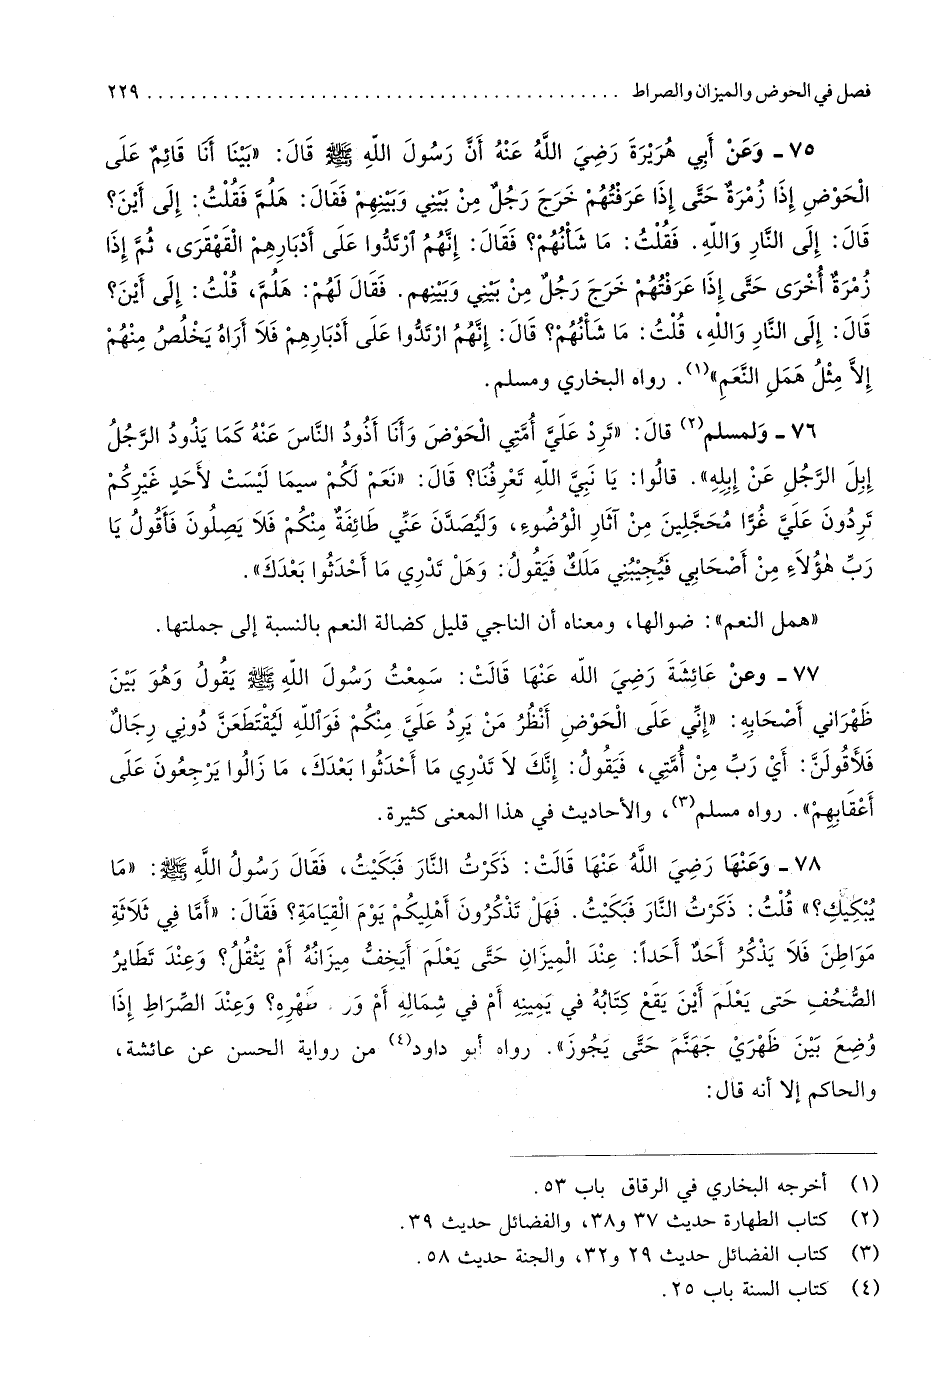 فصل في الحوض والميزان والصراط ............................................ ٢٢٩
٧٥ ـ وَعَنْ أَبِي هُرَيْرَةَ رَضِيَ اللَّهُ عَنْهُ أَنَّ رَسُولَ اللهِ ﷺ قَالَ: «بَيْنَا أَنَا قَائِمٌ عَلَى
الْحَوْضِ إِذَا زُمْرَةٌ حَتَّى إِذَا عَرَفْتُهُمْ خَرَجَ رَجُلٌ مِنْ بَيْنِي وَبَيْنِهِمْ فَقَالَ: هَلُمَّ فَقُلْتُ: إِلَى أَيْنَ؟
قَالَ: إِلَى النَّارِ وَاللهِ. فَقُلْتُ: مَا شَأْنُهُمْ؟ فَقَالَ: إِنَّهُمُ ارْتَدُّوا عَلَى أَدْبَارِهِمْ الْقَهْقَرَى، ثُمَّ إِذَا
زُمْرَةٌ أُخْرَى حَتَّى إِذَا عَرَفْتُهُمْ خَرَجَ رَجُلٌ مِنْ بَيْنِي وَبَيْنِهِم. فَقَالَ لَهُمْ: هَلُمَّ، قُلْتُ: إِلَى أَيْنَ؟
قَالَ: إِلَى النَّارِ وَاللهِ، قُلْتُ: مَا شَأْنُهُمْ؟ قَالَ: إِنَّهُمُ ارْتَدُّوا عَلَى أَدْبَارِهِمْ فَلاَ أَرَاهُ يَخْلُصُ مِنْهُمْ
إِلاَّ مِثْلُ هَمَلِ النَّعَمِ»(١). رواه البخاري ومسلم.
٧٦ ـ وَلمسلم(٢) قالَ: «تَرِدْ عَلَيَّ أُمَّتِي الْحَوْضَ وَأَنَا أَذُودُ النَّاسَ عَنْهُ كَمَا يَذُودُ الرَّجُلُ
إِبِلَ الرَّجُلِ عَنْ إِبِلِهِ». قالُوا: يَا نَبِيَّ اللهِ تَعْرِفُنَا؟ قَالَ: «نَعَمْ لَكُمْ سيمَا لَيْسَتْ لأَحَدٍ غَيْرِكُمْ
تَرِدُونَ عَلَيَّ غُرًّا مُحَجَّلِينَ مِنْ آثَارِ الْوُضُوءِ، وَلَيُصَدَّنَ عَنِّي طَائِفَةٌ مِنْكُمْ فَلاَ يَصِلُونَ فَأَقُولُ يَا
رَبِّ هٰؤُلاَءِ مِنْ أَصْحَابِي فَيُجِيْبُنِي مَلَكٌ فَيَقُولُ: وَهَلْ تَدْرِي مَا أَحْدَثُوا بَعْدَكَ».
«همل النعم»: ضوالها، ومعناه أن الناجي قليل كضالة النعم بالنسبة إلى جملتها.
٧٧ ـ وعنْ عَائِشَةَ رَضِيَ الله عَنْهَا قَالَتْ: سَمِعْتُ رَسُولَ اللهِ ﷺ يَقُولُ وَهُوَ بَيْنَ
ظَهْرَاني أَصْحَابِهِ: «إِنِّي عَلَى الْحَوْضِ أَنْظُرُ مَنْ يَرِدُ عَلَيَّ مِنْكُمْ فَوَاللهِ لَيُقْتَطَعَنَّ دُونِي رِجَالٌ
فَلأَقُولَنَّ: أَيْ رَبِّ مِنْ أُمَّتِي، فَيَقُولُ: إِنَّكَ لاَ تَدْرِي مَا أَحْدَثُوا بَعْدَكَ، مَا زَالُوا يَرْجِعُونَ عَلَى
أَعْقَابِهِمْ». رواه مسلم(٣)، والأحاديث في هذا المعنى كثيرة.
٧٨ ـ وَعَنْهَا رَضِيَ اللَّهُ عَنْهَا قَالَتْ: ذَكَرْتُ النَّارَ فَبَكَيْتُ، فَقَالَ رَسُولُ اللَّهِ ﷺ: «مَا
يُبْكِيْكِ؟» قُلْتُ: ذَكَرْتُ النَّارَ فَبَكَيْتُ. فَهَلْ تَذْكُرُونَ أَهْلِيكُمْ يَوْمَ الْقِيَامَةِ؟ فَقَالَ: «أَمَّا فِي ثَلاَثَةِ
مَوَاطِنَ فَلاَ يَذْكُرُ أَحَدٌ أَحَداً: عِنْدَ الْمِيزَانِ حَتَّى يَعْلَمَ أَيَخِفُّ مِيزَانُهُ أَمْ يَثْقُلُ؟ وَعِنْدَ تَطَايُرِ
الصُّحُفِ حَتى يَعْلَمَ أَيْنَ يَقَعْ كِتَابُهُ في يَمِينِهِ أَمْ في شِمَالِهِ أَمْ ظَهْرِهِ؟ وَعِنْدَ الصِّرَاطِ إِذَا
وُضِعَ بَيْنَ ظَهْرَيْ جَهَنَّمَ حَتَّى يَجُوزَ». رواه أبو داود(٤) من رواية الحسن عن عائشة،
والحاكم إلا أنه قال:
(١) أخرجه البخاري في الرقاق باب ٥٣.
(٢) كتاب الطهارة حديث ٣٧ و٣٨، والفضائل حديث ٣٩.
(٣) كتاب الفضائل حديث ٢٩ و٣٢، والجنة حديث ٥٨.
(٤) كتاب السنة باب ٢٥.